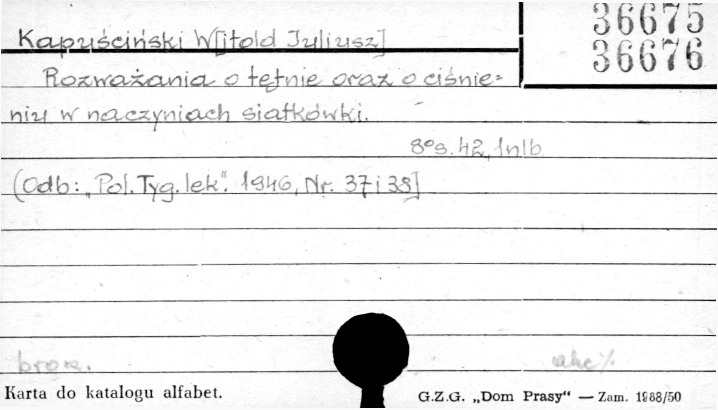 36675
36676
Kapuściński W[itold Juliusz]
Rozważania o tętnie oraz o ciśnie=
niu w naczyniach siatkówki.
8° s. 42, 1 nlb
(Odb: „Pol. Tyg. lek". 1946, Nr. 37 i 38]
brosz.
Karta do katalogu alfabet.
G.Z.G. „Dom Prasy" — Zam. 1968/50